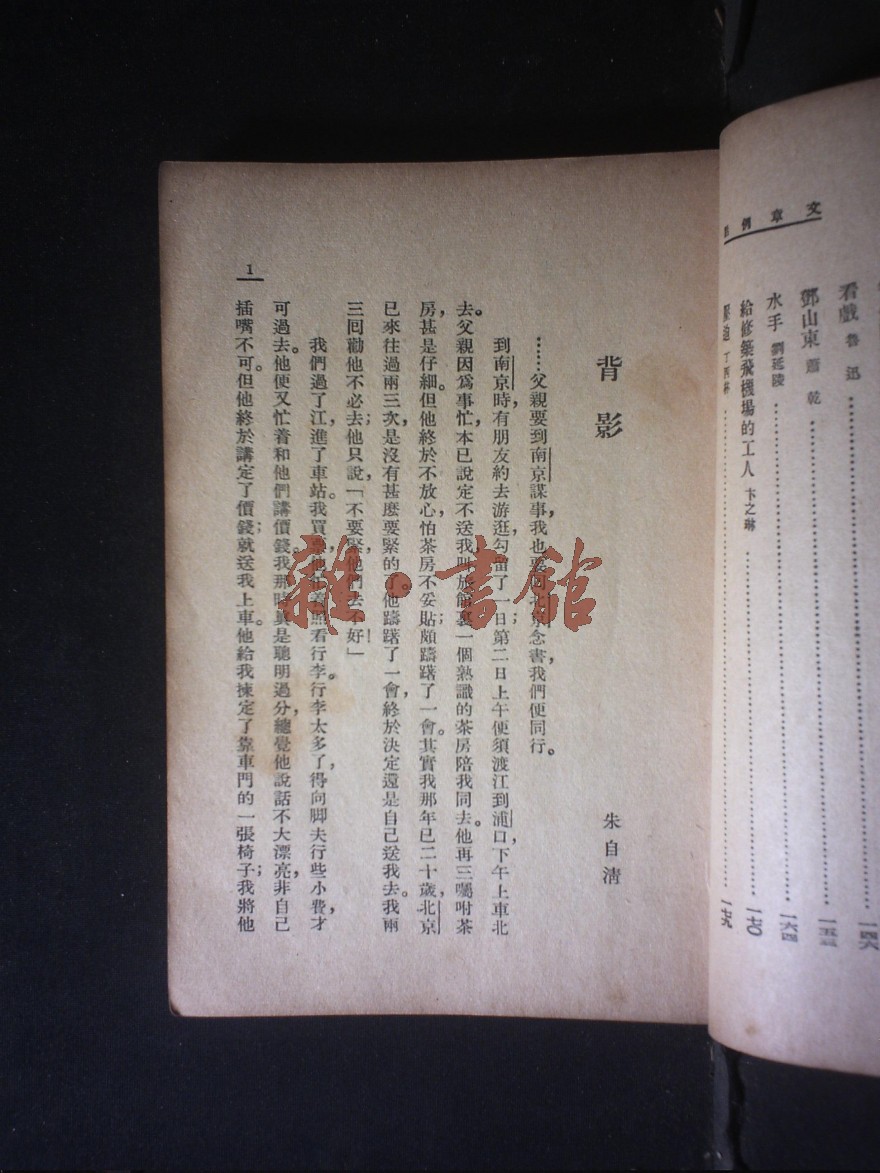 文章例
看戲 魯迅 一四六
鄧山東 蕭乾 一五三
水手 劉延陵 一六四
給修築飛機場的工人 卞之琳 一七〇
壓迫 丁西林 一七九
背影
朱自清
……父親要到南京謀事，我也要回北京念書，我們便同行。
到南京時，有朋友約去游逛，勾留了一日；第二日上午便須渡江到浦口，下午上車北
去。父親因爲事忙，本已說定不送我，叫旅館裏一個熟識的茶房陪我同去。他再三囑咐茶
房，甚是仔細。但他終於不放心，怕茶房不妥貼；頗躊躇了一會。其實我那年已二十歲，北京
已來往過兩三次，是沒有甚麽要緊的了。他躊躇了一會，終於決定還是自己送我去。我兩
三囘勸他不必去；他只說，「不要緊，他們去不好！」
我們過了江，進了車站。我買票，他忙着照看行李。行李太多了，得向脚夫行些小費，才
可過去。他便又忙着和他們講價錢。我那時眞是聰明過分，總覺他說話不大漂亮，非自己
插嘴不可。但他終於講定了價錢；就送我上車。他給我揀定了靠車門的一張椅子；我將他
1
雜·書館